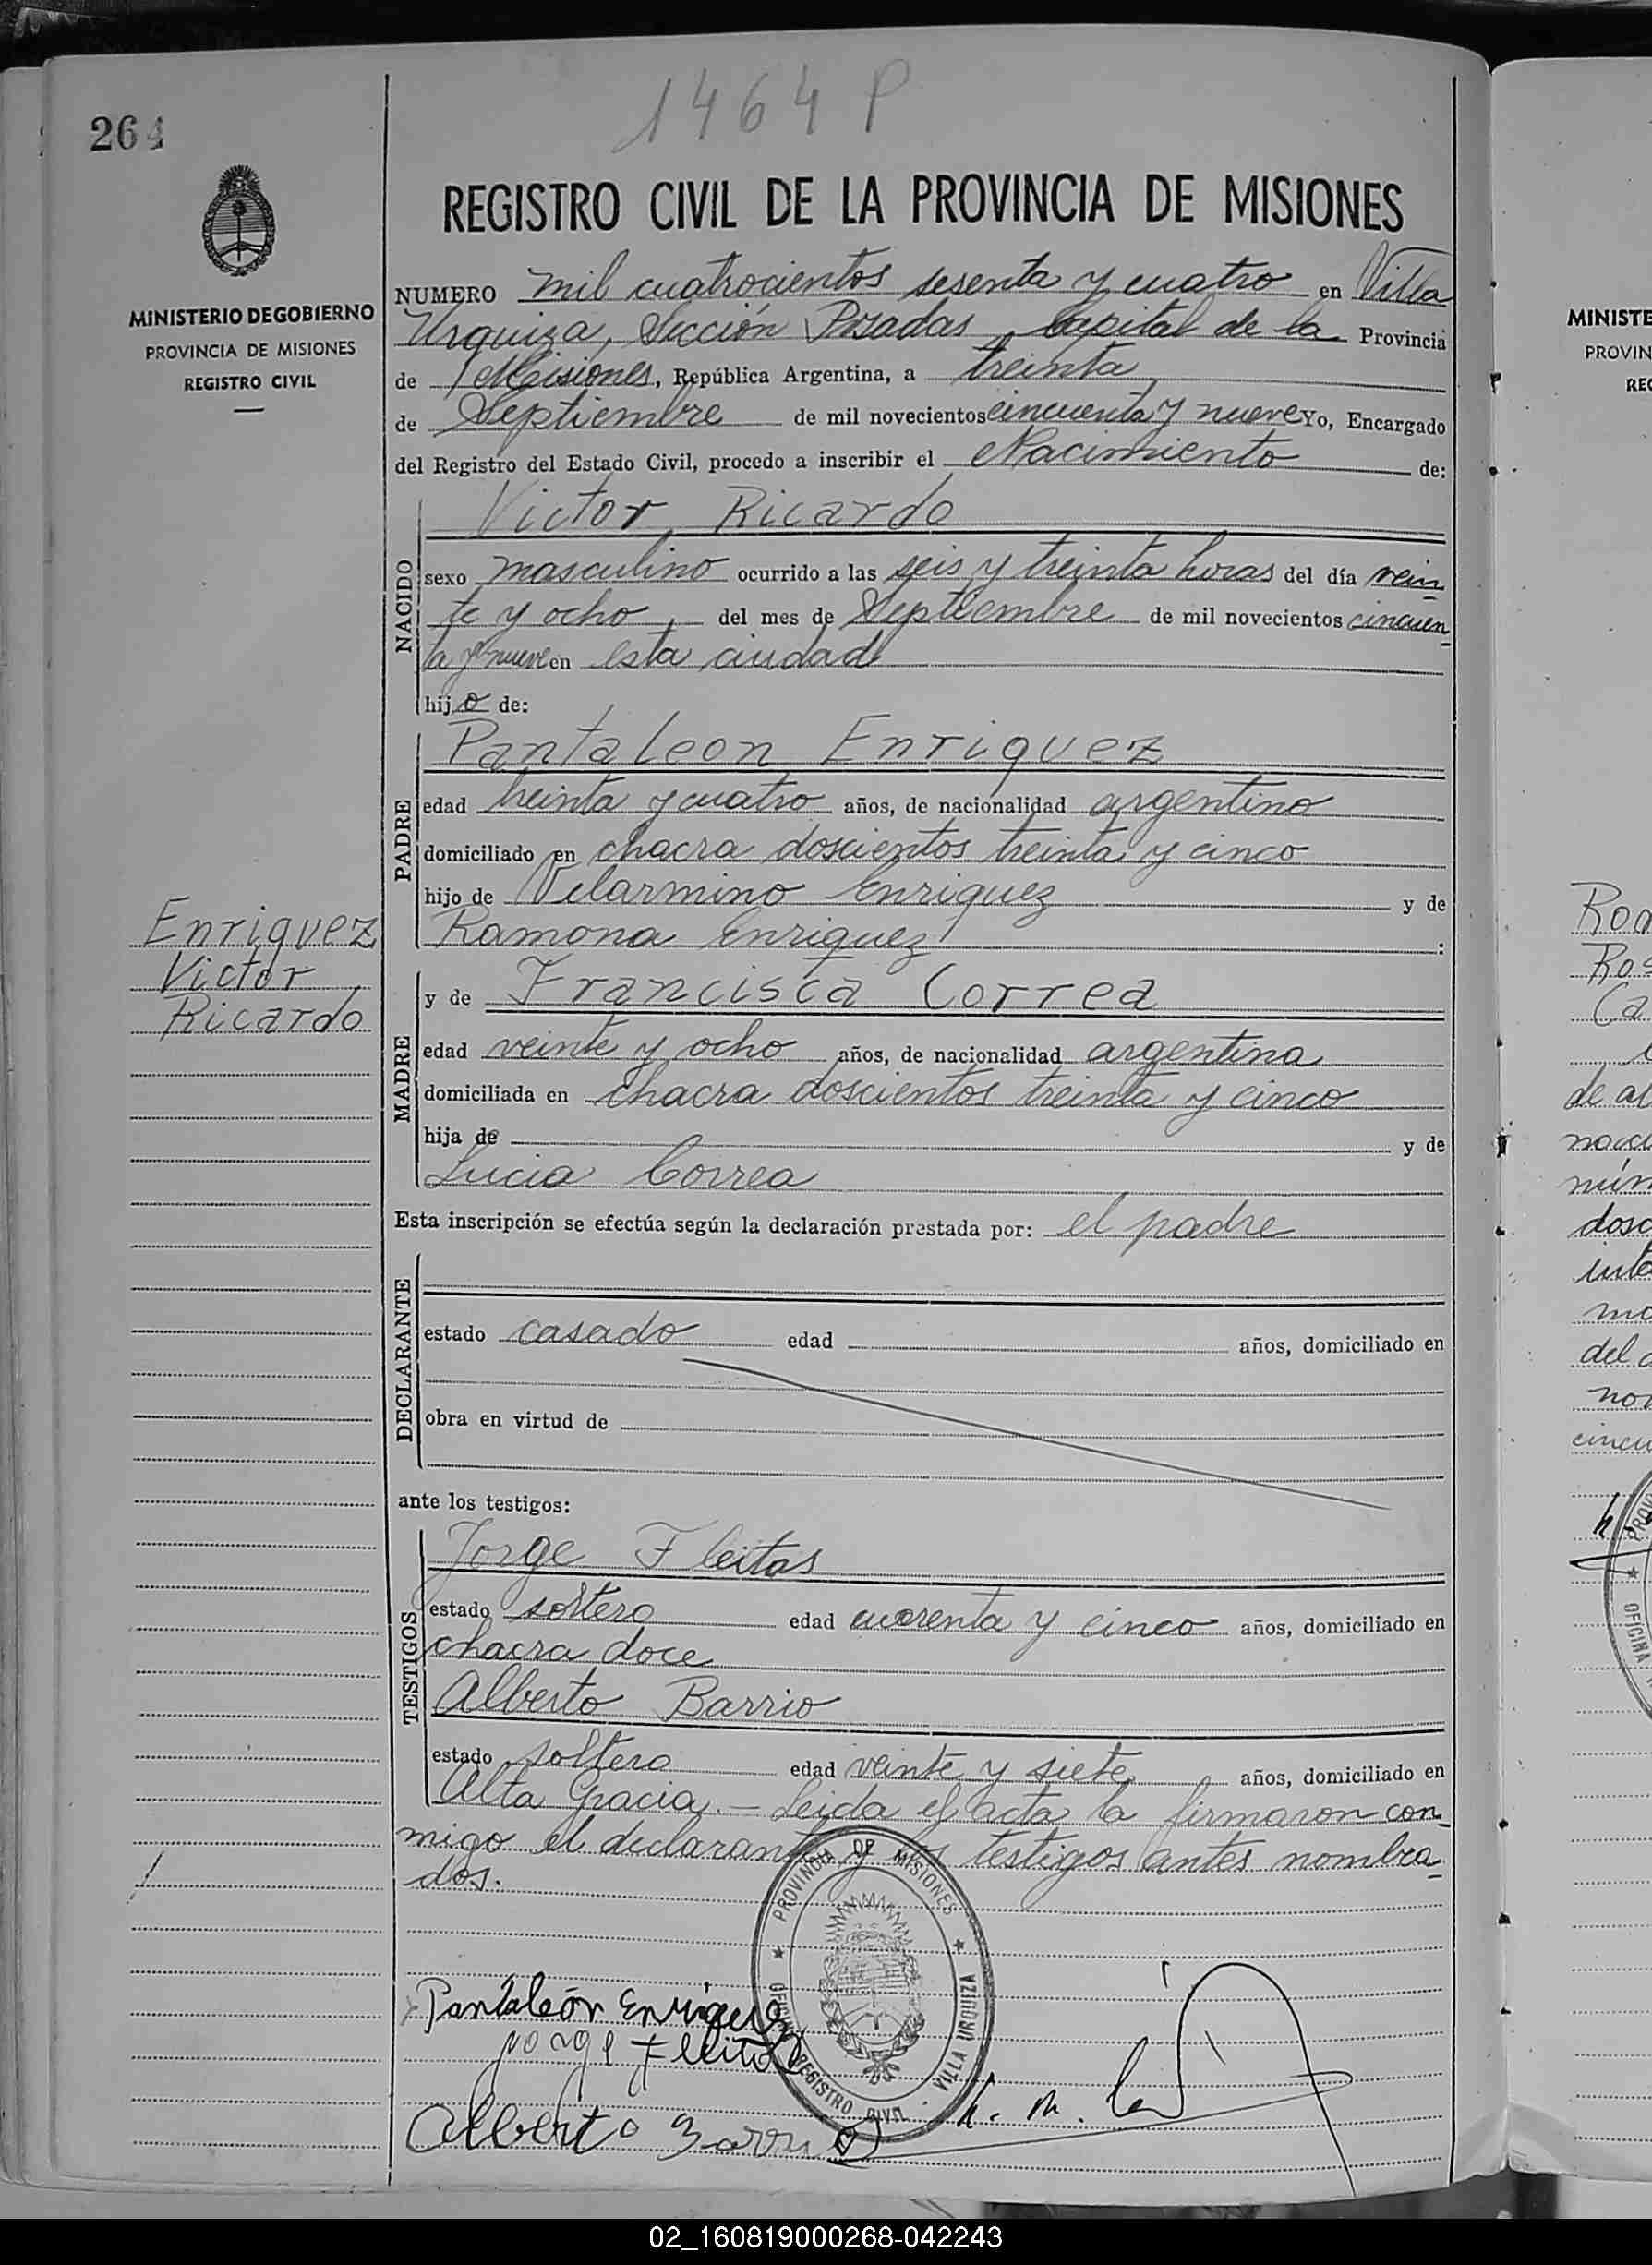 1464 P
264
REGISTRO CIVIL DE LA PROVINCIA DE MISIONES
MINISTERIO DE GOBIERNO
PROVINCIA DE MISIONES
REGISTRO CIVIL
NUMERO mil cuatrocientos sesenta y cuatro en Villa
Urquiza, Sección Posadas, Capital de la Provincia
de Misiones, República Argentina, a treinta
de Septiembre de mil novecientos cincuenta y nueve Yo, Encargado
del Registro del Estado Civil, procedo a inscribir el Nacimiento de:
NACIDO
Victor Ricardo
sexo masculino ocurrido a las seis y treinta horas del día vein
te y ocho, del mes de Septiembre de mil novecientos cincuen
ta y nueve en esta ciudad
hijo de:
PADRE
Pantaleon Enriquez
edad treinta y cuatro años, de nacionalidad argentino
domiciliado en chacra doscientos treinta y cinco
hijo de Velarmino Enriquez y de
Ramona Enriquez :
Enriquez
Victor
Ricardo
MADRE
y de Francisca Correa
edad veinte y ocho años, de nacionalidad argentina
domiciliada en chacra doscientos treinta y cinco
hija de y de
Lucia Correa
Esta inscripción se efectúa según la declaración prestada por: el padre
DECLARANTE
estado casado edad años, domiciliado en
obra en virtud de
ante los testigos:
TESTIGOS
Jorge Fleitas
estado soltero edad cuarenta y cinco años, domiciliado en
chacra doce
Alberto Barrio
estado soltero edad veinte y siete años, domiciliado en
Alta Gracia.- Leida el acta la firmaron con
migo el declarante y los testigos antes nombra
dos.
PROVINCIA DE MISIONES
OFICINA REGISTRO CIVIL - VILLA URQUIZA
Pantaleón Enriquez
jorge fleitas
Alberto Barrio
MINISTE
PROVIN
REG
Ros
Ca
de
OFICINA
02_160819000268-042243